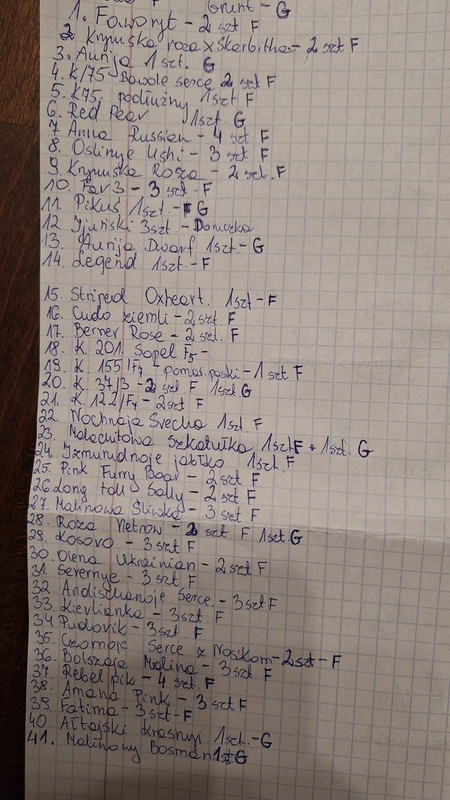 F
Grunt - G
1. Faworyt - 2 szt F
2 Krymska roza x Skorbitha - 2 szt F
3. Aurija 1 szt. G
4. K/75 - Bawole serce 2 szt F
5. K75. podłużny 1 szt F
6. Red Pear 1 szt. G
7 Anna Russian - 4 szt F
8. Oslinyje Ushi - 3 szt F
9. Krymska Roza - 2 szt. F
10. Far 3 - 3 szt - F
11. Pikuś 1 szt. - G
12 Ijuński 3 szt - Doniczka
13. Aurija Dwarf 1 szt - G
14. Legend 1 szt. - F
15. Striped Oxheart. 1 szt - F
16. Cudo ziemli - 2 szt F
17. Berner Rose - 2 szt. F
18. K. 201. Sopel F5 -
19. K. 155/F4 - pomar. paski - 1 szt F
20. K. 37/3 - 2 szt F 1 szt G
21. K. 122/F4 - 2 szt F
22 Nochnaja Svecha 1 szt. F
23. Malachitowa Szkatułka 1 szt F + 1 szt. G
24. Izmurudnoje jabłko 1 szt. F
25. Pink Furry Boar - 2 szt F
26. Long tall Sally - 2 szt F
27. Malinowa Śliwka - 3 szt F
28. Roza Vetrow - 2 szt F 1 szt G
29. Kosovo - 3 szt F
30. Olena Ukrainian - 2 szt F
31. Severnyje - 3 szt F
32. Andischanoje Serce - 3 szt F
33. Kievlianka - 3 szt. F
34 Pudovik - 3 szt. F
35. Czornoje Serce z Nosikom - 2 szt - F
36. Bolszaja Malina - 3 szt. F
37. Rebel pik - 4 szt. F
38. Amana Pink - 3 szt F
39 Fatima - 3 szt - F
40. Ałtajski Krasnyj 1 szt. - G
41. Malinowy Bosman 1 szt G